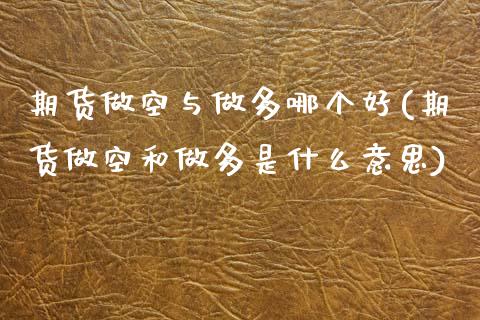 期货做空与做多哪个好(期
货做空和做多是什么意思)